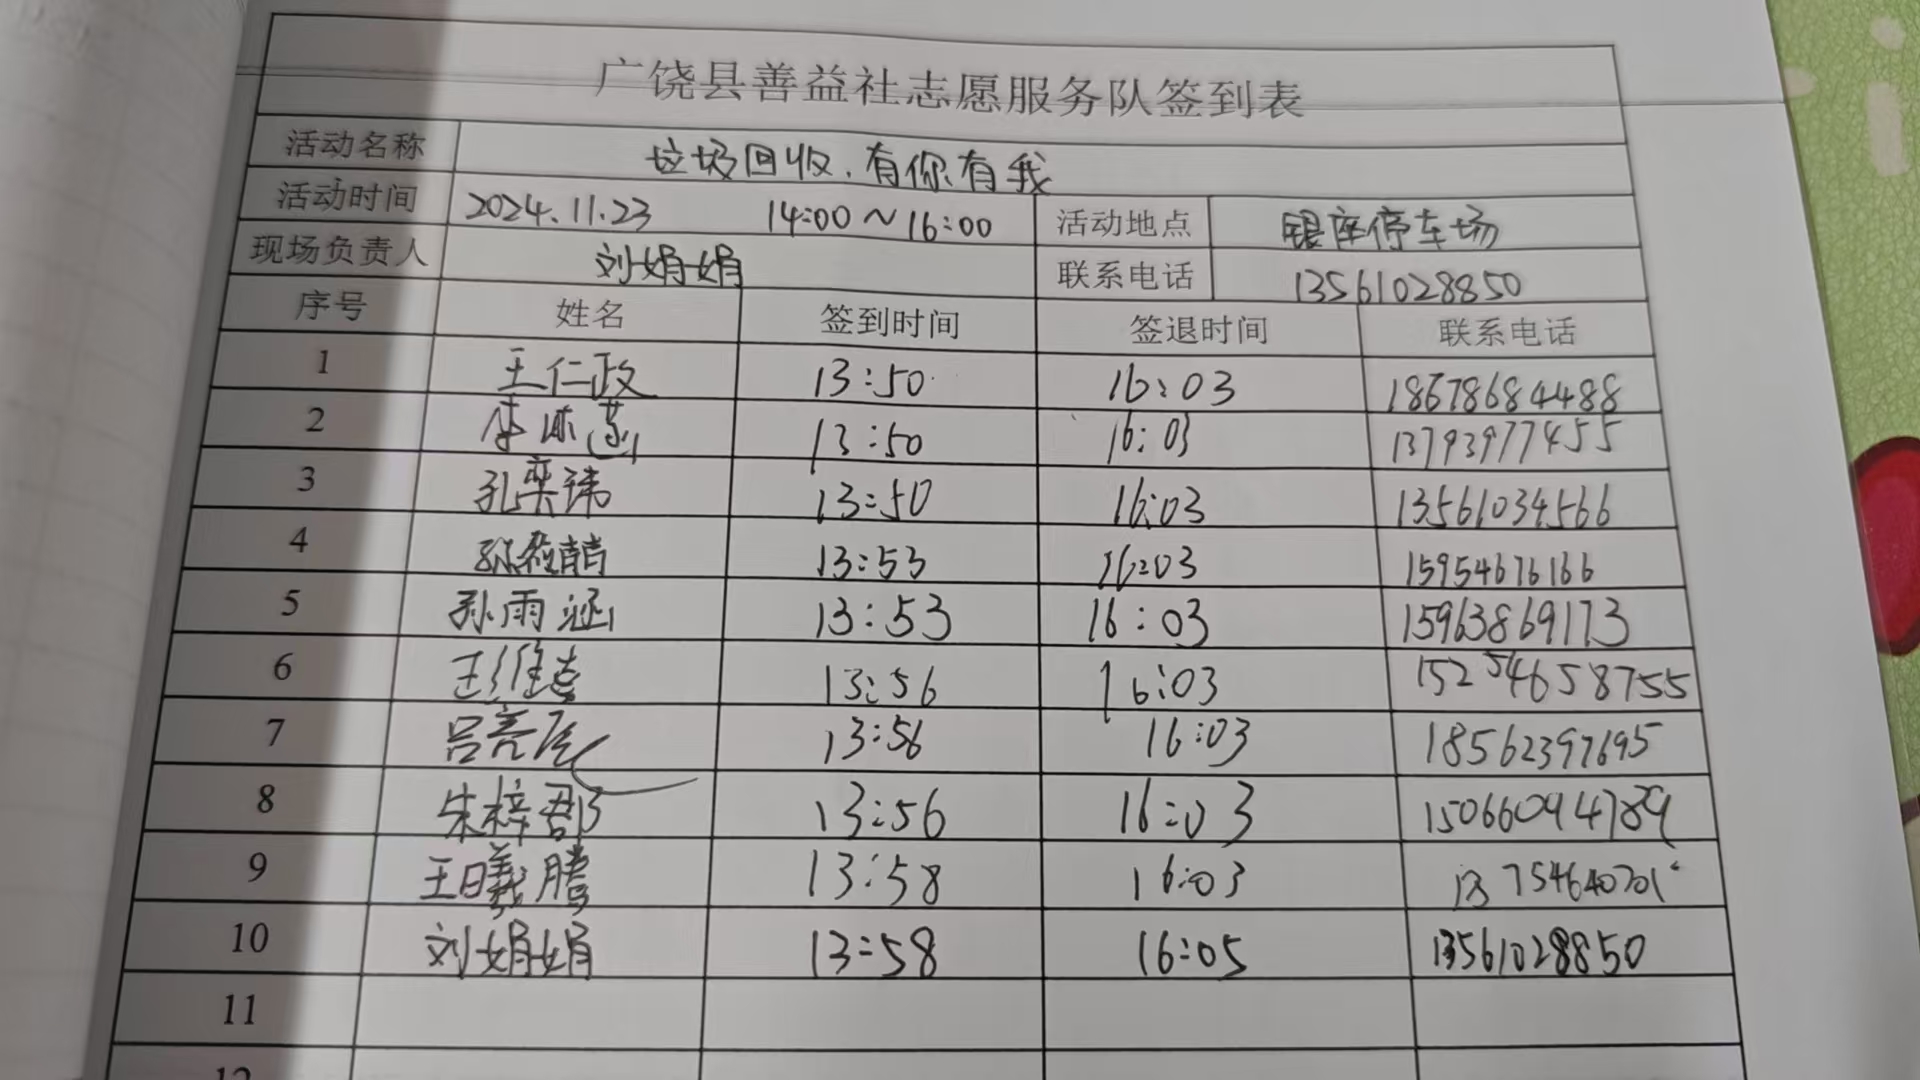 广饶县善益社志愿服务队签到表
活动名称 垃圾回收.有你有我
活动时间 2024.11.23 14:00~16:00 活动地点 银座停车场
现场负责人 刘娟娟 联系电话 13561028850
序号 姓名 签到时间 签退时间 联系电话
1 王仁政 13:50 16:03 18678684488
2 13:50 16:03 13793977455
3 孔栾玮 13:50 16:03 13561034566
4 13:53 16:03 15954676166
5 孙雨涵 13:53 16:03 15963869173
6 13:56 16:03 15254658755
7 13:56 16:03 18562397695
8 朱梓郡 13:56 16:03 15066094789
9 王曦腾 13:58 16:03 13754640701
10 刘娟娟 13:58 16:05 13561028850
11
12